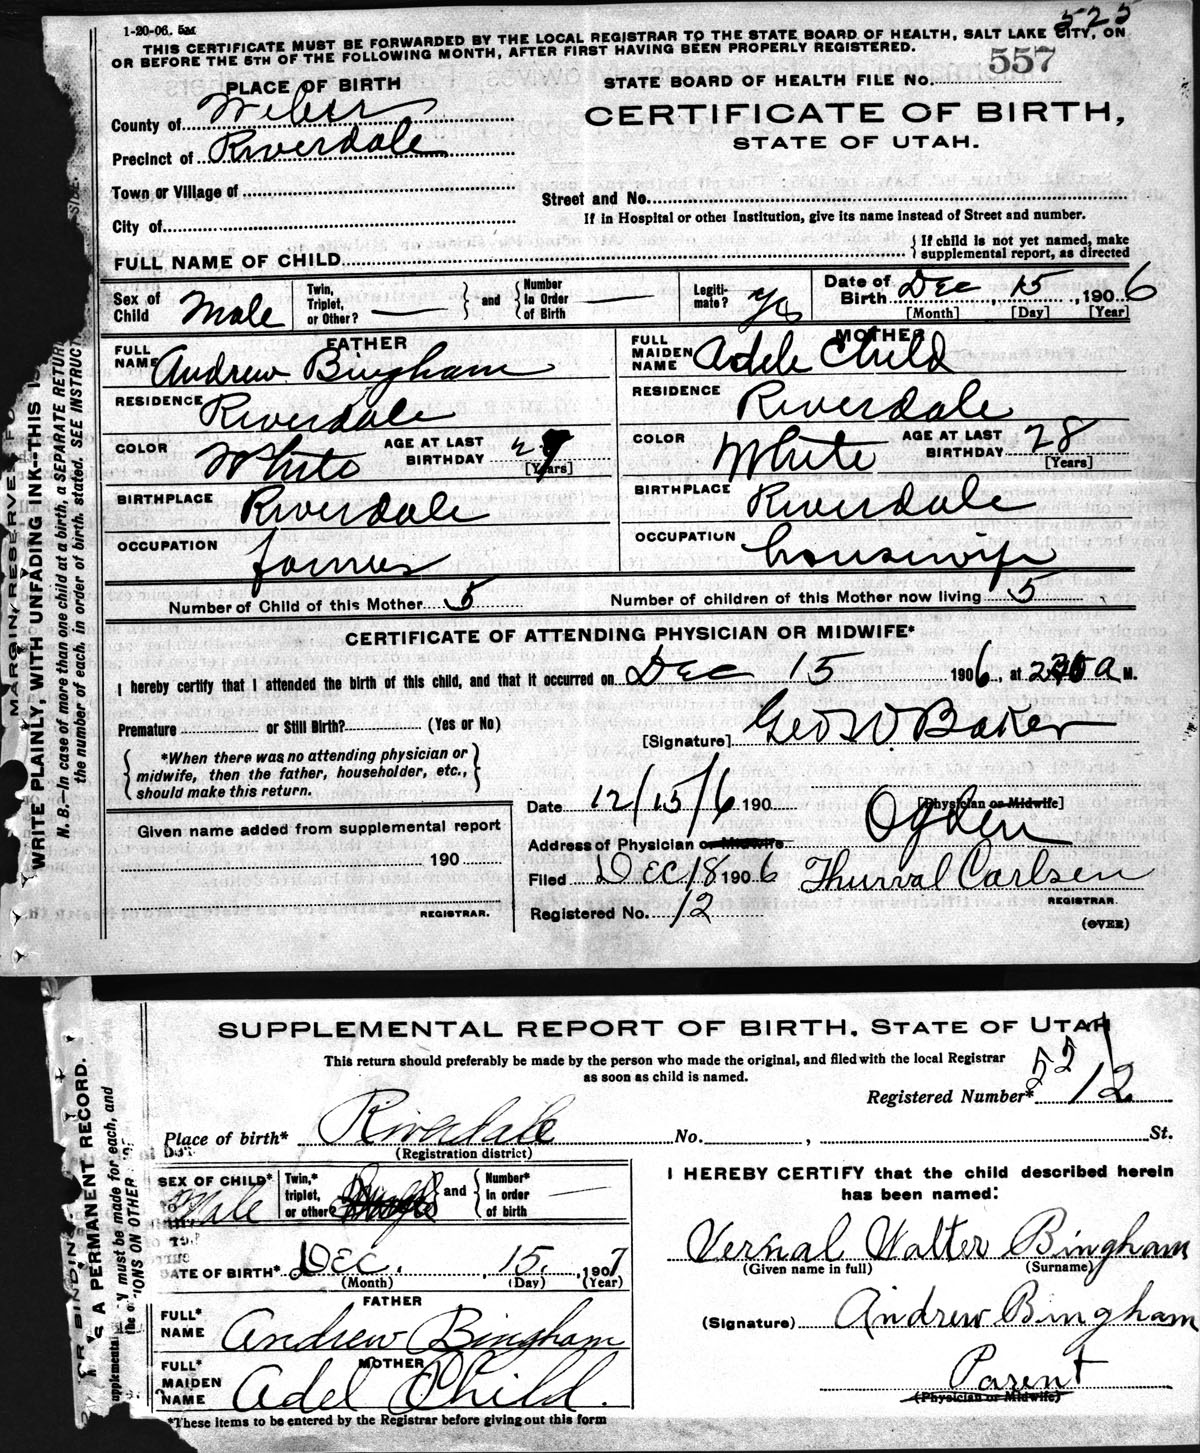 525
1-20-06. 5M
THIS CERTIFICATE MUST BE FORWARDED BY THE LOCAL REGISTRAR TO THE STATE BOARD OF HEALTH, SALT LAKE CITY, ON
OR BEFORE THE 5TH OF THE FOLLOWING MONTH, AFTER FIRST HAVING BEEN PROPERLY REGISTERED.
STATE BOARD OF HEALTH FILE NO. 557
PLACE OF BIRTH
County of Weber
Precinct of Riverdale
Town or Village of
City of
CERTIFICATE OF BIRTH,
STATE OF UTAH.
Street and No.
If in Hospital or other Institution, give its name instead of Street and number.
FULL NAME OF CHILD { If child is not yet named, make supplemental report, as directed
Sex of Child Male Twin, Triplet, or Other? — } and { Number In Order of Birth — Legiti-mate? Yes Date of Birth Dec 15, 1906
[Month] [Day] [Year]
FATHER
FULL NAME Andrew Bingham
RESIDENCE Riverdale
COLOR White AGE AT LAST BIRTHDAY 29 [Years]
BIRTHPLACE Riverdale
OCCUPATION farmer
MOTHER
FULL MAIDEN NAME Adele Child
RESIDENCE Riverdale
COLOR White AGE AT LAST BIRTHDAY 28 [Years]
BIRTHPLACE Riverdale
OCCUPATION housewife
Number of Child of this Mother 5 Number of children of this Mother now living 5
CERTIFICATE OF ATTENDING PHYSICIAN OR MIDWIFE*
I hereby certify that I attended the birth of this child, and that it occurred on Dec 15 1906, at a M.
Premature or Still Birth? (Yes or No)
*When there was no attending physician or midwife, then the father, householder, etc., should make this return.
[Signature] Geo W Baker
[Physician or Midwife]
Date 12/15/6 190
Address of Physician or Midwife Ogden
Given name added from supplemental report
190
REGISTRAR.
Filed Dec 18 1906 Thurval Carlsen
REGISTRAR.
Registered No. 12
(OVER)
MARGIN RESERVE
WRITE PLAINLY, WITH UNFADING INK--THIS
N. B.—In case of more than one child at a birth, a SEPARATE RETURN
the number of each, in order of birth, stated. SEE INSTRUCT
SIDE.
SUPPLEMENTAL REPORT OF BIRTH, STATE OF UTAH
This return should preferably be made by the person who made the original, and filed with the local Registrar
as soon as child is named.
Registered Number* 12
Place of birth* Riverdale No. , St.
(Registration district)
SEX OF CHILD* Male Twin,* triplet, or other and { Number* In order of birth —
DATE OF BIRTH* Dec. 15, 1907
(Month) (Day) (Year)
FATHER
FULL* NAME Andrew Bingham
MOTHER
FULL* MAIDEN NAME Adel Child.
*These items to be entered by the Registrar before giving out this form
I HEREBY CERTIFY that the child described herein
has been named:
Vernal Walter Bingham
(Given name in full) (Surname)
(Signature) Andrew Bingham
Parent
(Physician or Midwife)
A PERMANENT RECORD.
must be made for each, and
IONS ON OTHER